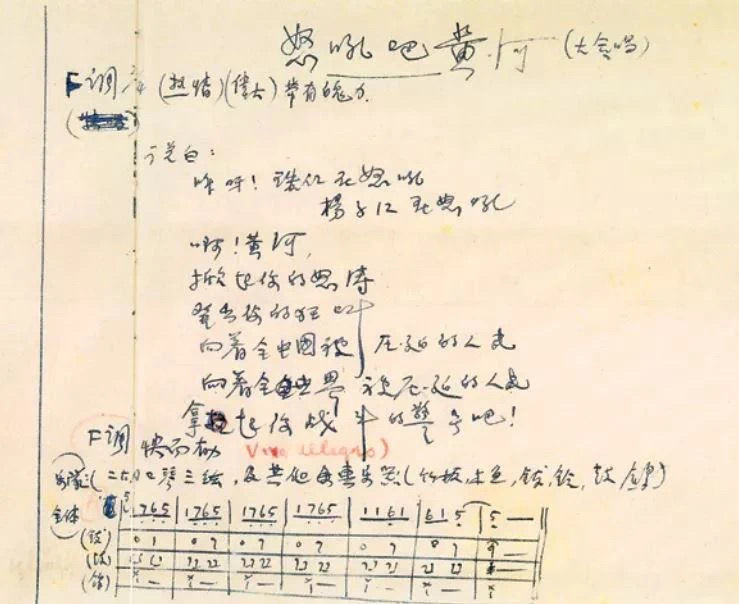 怒吼吧黄河 (大合唱)
F调 (热情)(偉大) 带有魄力.
说白:
听呀! 珠江在怒吼
揚子江在怒吼
啊! 黄河,
掀起你的怒涛
發出你的狂叫
向着全中國被压迫的人民
向着全世界被压迫的人民
拿起你战斗的警号吧!
F调 快而 Vivo allegro)
二胡 三絃, 及其他 乐器(竹板, 木鱼, 钹, 铃, 鼓
全体 1765 | 1765 | 1765 | 1765 | 1161 | 615 | 5 —
(鼓) 0